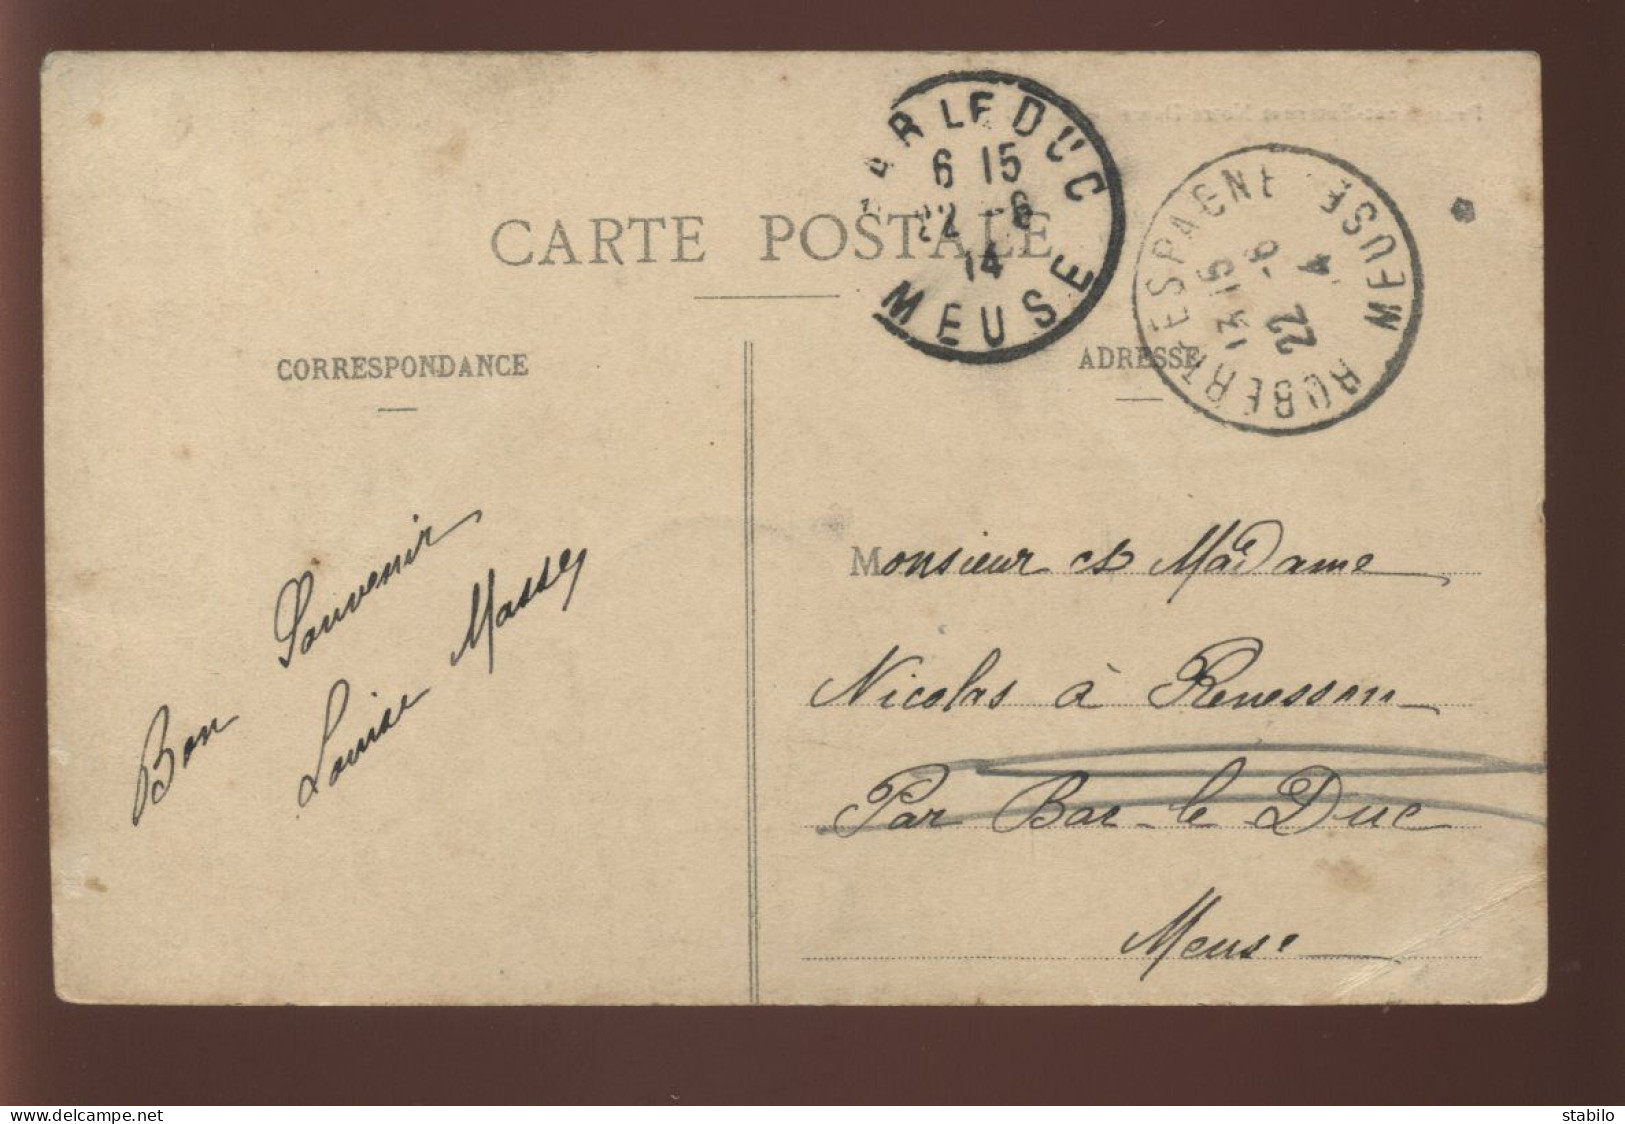 CARTE POSTALE
BAR LE DUC
6 15
22 -6
14
MEUSE
ROBERT-ESPAGNE MEUSE
13 15
22 -6
14
CORRESPONDANCE
ADRESSE
Bon Souvenir
Louise Masse
Monsieur et Madame
Nicolas à Renesson
Par Bar-le-Duc
Meuse
delcampe.net
stabilo